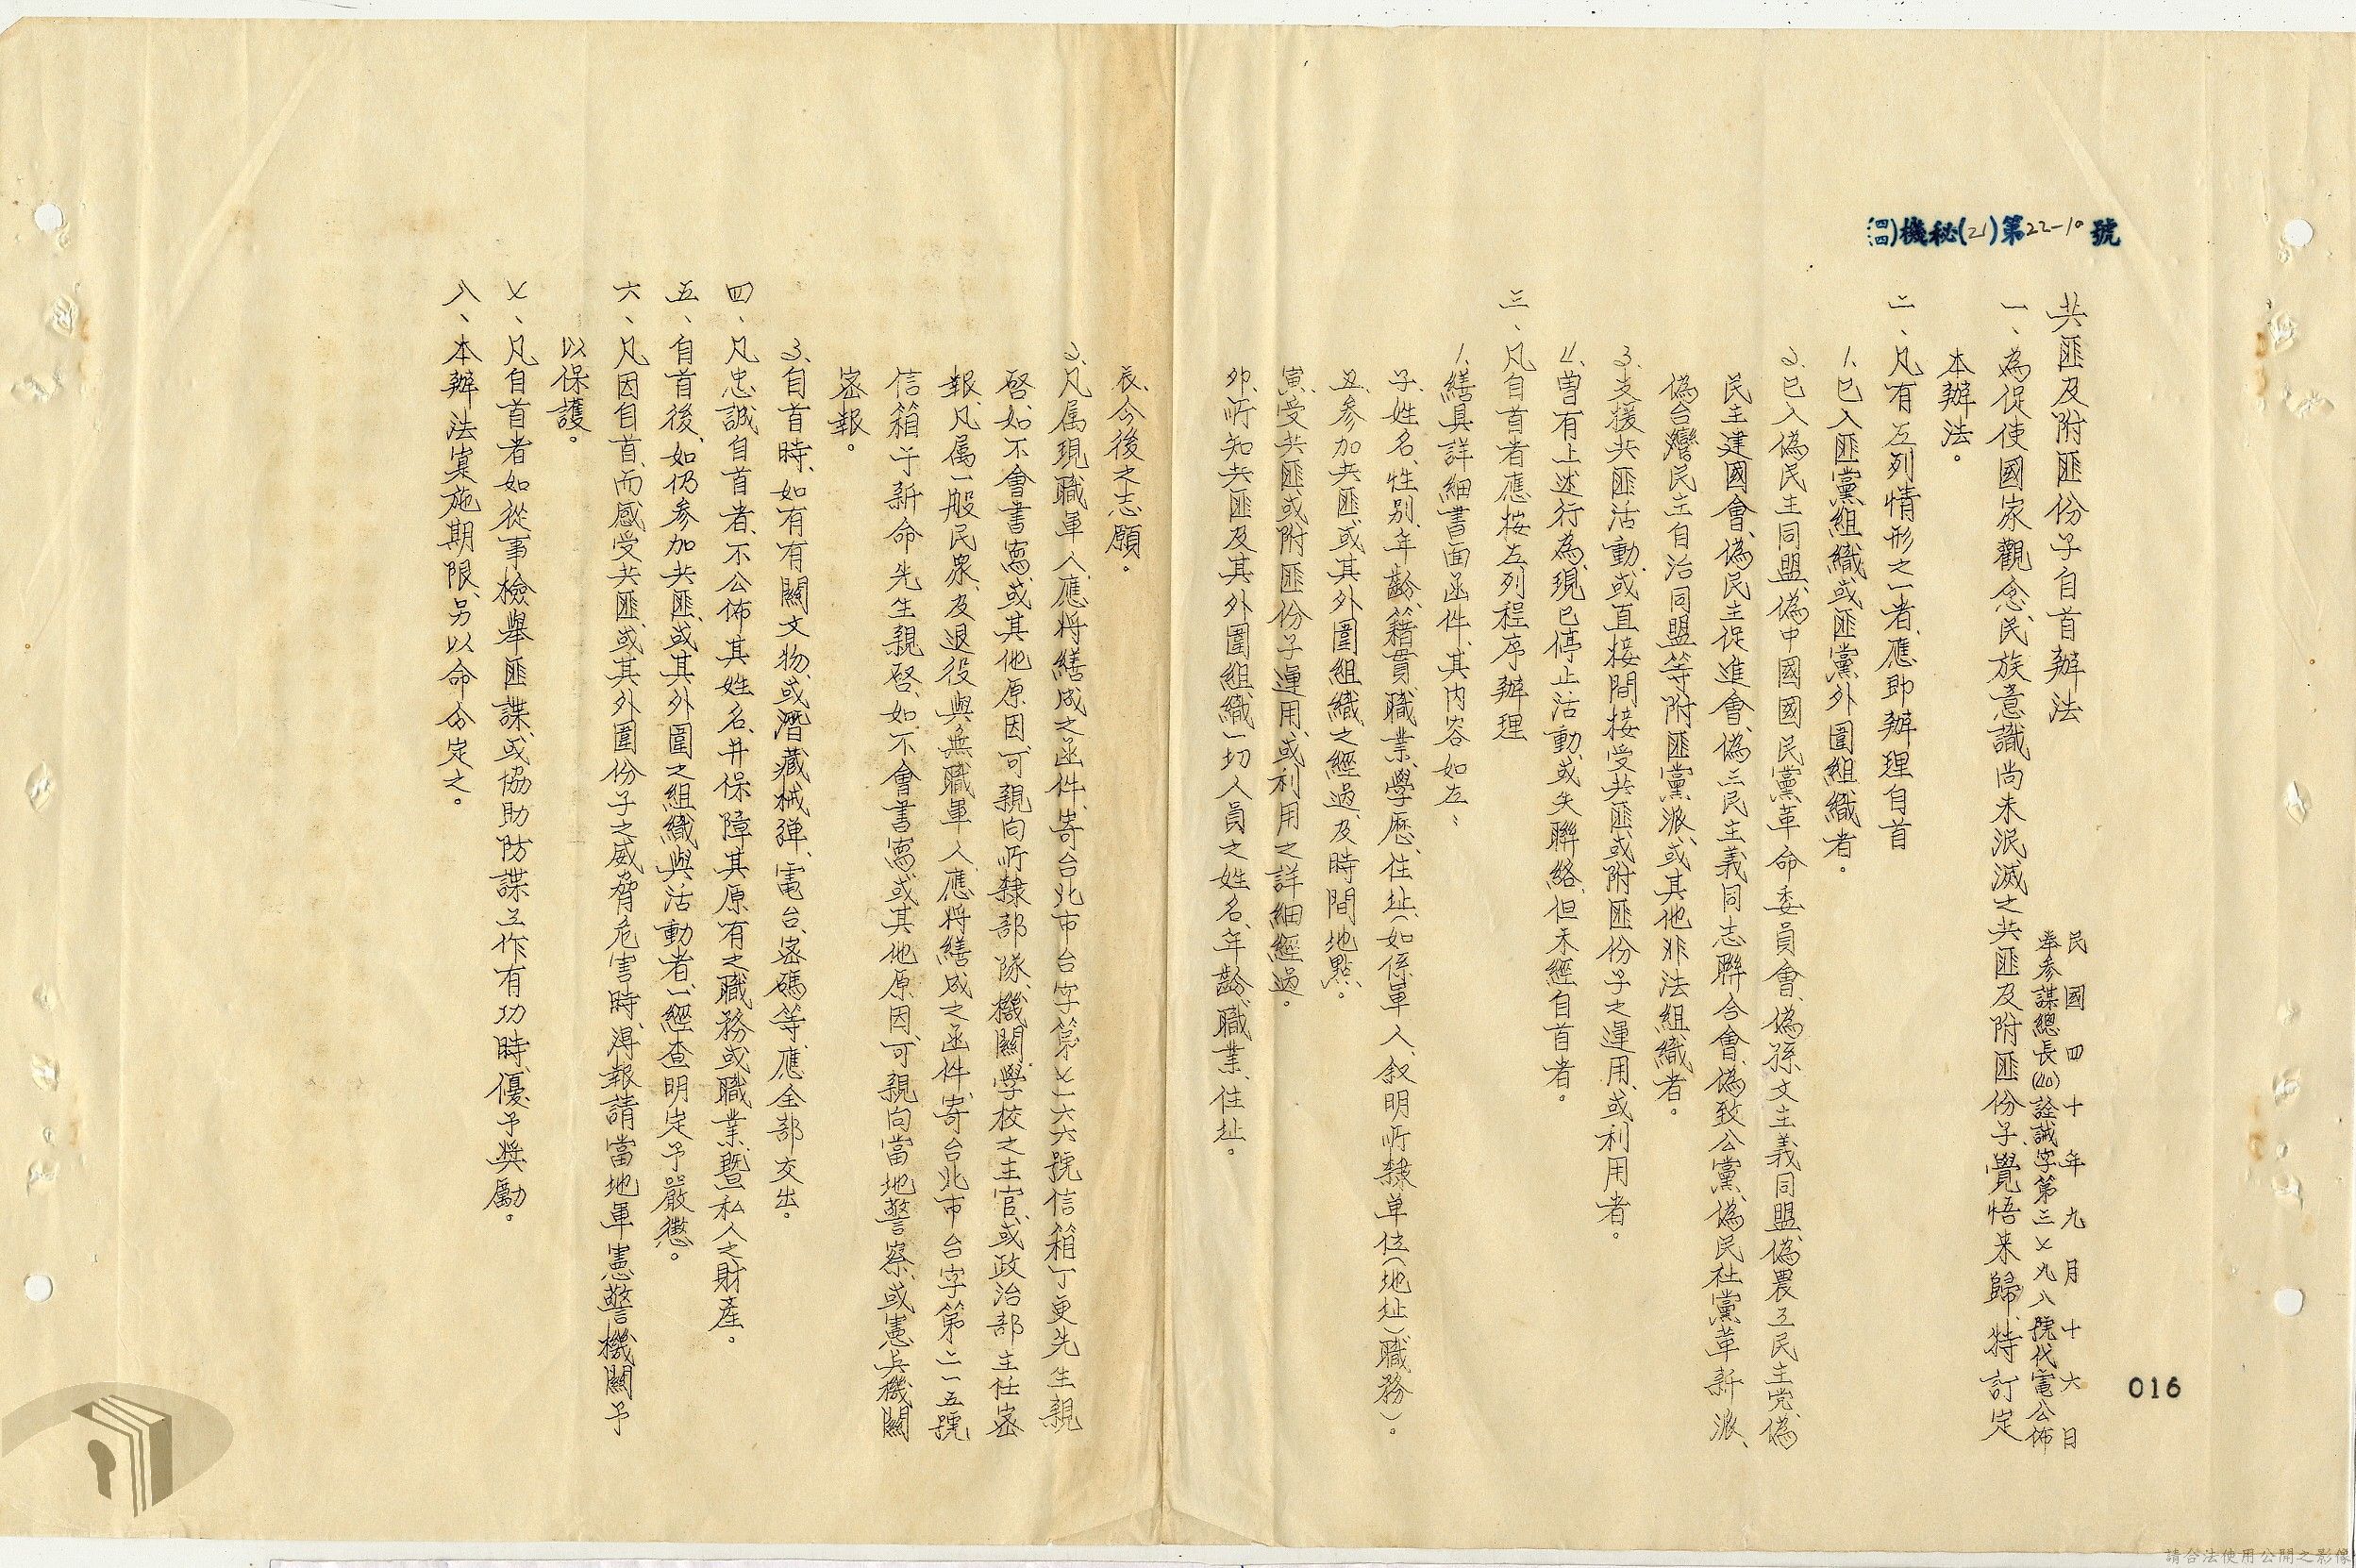 (四四)機秘(21)第22-10號
共匪及附匪份子自首辦法
民國四十年九月十六日
奉參謀總長(40)詮誠字第三七九八號代電公佈
一、為促使國家觀念、民族意識尚未泯滅之共匪及附匪份子、覺悟来歸、特訂定
本辦法。
二、凡有左列情形之一者、應即辦理自首
1.已入匪黨組織或匪黨外圍組織者。
2.已入偽民主同盟、偽中國國民黨革命委員會、偽孫文主義同盟、偽農工民主党、偽
民主建國會、偽民主促進會、偽三民主義同志聯合會、偽致公黨、偽民社黨革新派、
偽台灣民主自治同盟等附匪黨派、或其他非法組織者。
3.支援共匪活動、或直接間接受共匪或附匪份子之運用、或利用者。
4.曾有上述行為、現已停止活動、或失聯絡、但未經自首者。
三、凡自首者應按左列程序辦理
1.繕具詳細書面函件、其内容如左:
子、姓名、性别、年齡、籍貫、職業、學歷、住址、(如係軍人、叙明所隸单位(地址)職務)。
丑、参加共匪、或其外圍組織之經過、及時間地點。
寅、受共匪或附匪份子運用、或利用之詳細經過。
卯、所知共匪及其外圍組織一切人員之姓名、年齡、職業、住址。
辰、今後之志願。
2.凡属現職軍人、應将繕成之函件、寄台北市台字第七一六六號信箱丁更先生親
啓、如不會書寫、或其他原因、可親向所隸部隊、機關、學校之主官、或政治部主任密
報、凡属一般民眾、及退役與無職軍人、應将繕成之函件、寄台北市台字第二一五號
信箱于新命先生親啓、如不會書寫、或其他原因、可親向當地警察、或憲兵機關
密報。
3.自首時、如有有關文物、或潛藏械弹、電台、密碼等、應全部交出。
四、凡忠誠自首者、不公佈其姓名、并保障其原有之職務或職業、暨私人之財產。
五、自首後、如仍参加共匪、或其外圍之組織與活動者、一經查明定予嚴懲。
六、凡因自首、而感受共匪、或其外圍份子之威脅危害時、得報請當地軍憲警機關予
以保護。
七、凡自首者如從事檢舉匪諜、或協助防諜工作有功時、優予獎勵。
八、本辦法實施期限、另以命令定之。
016
請合法使用公開之影像